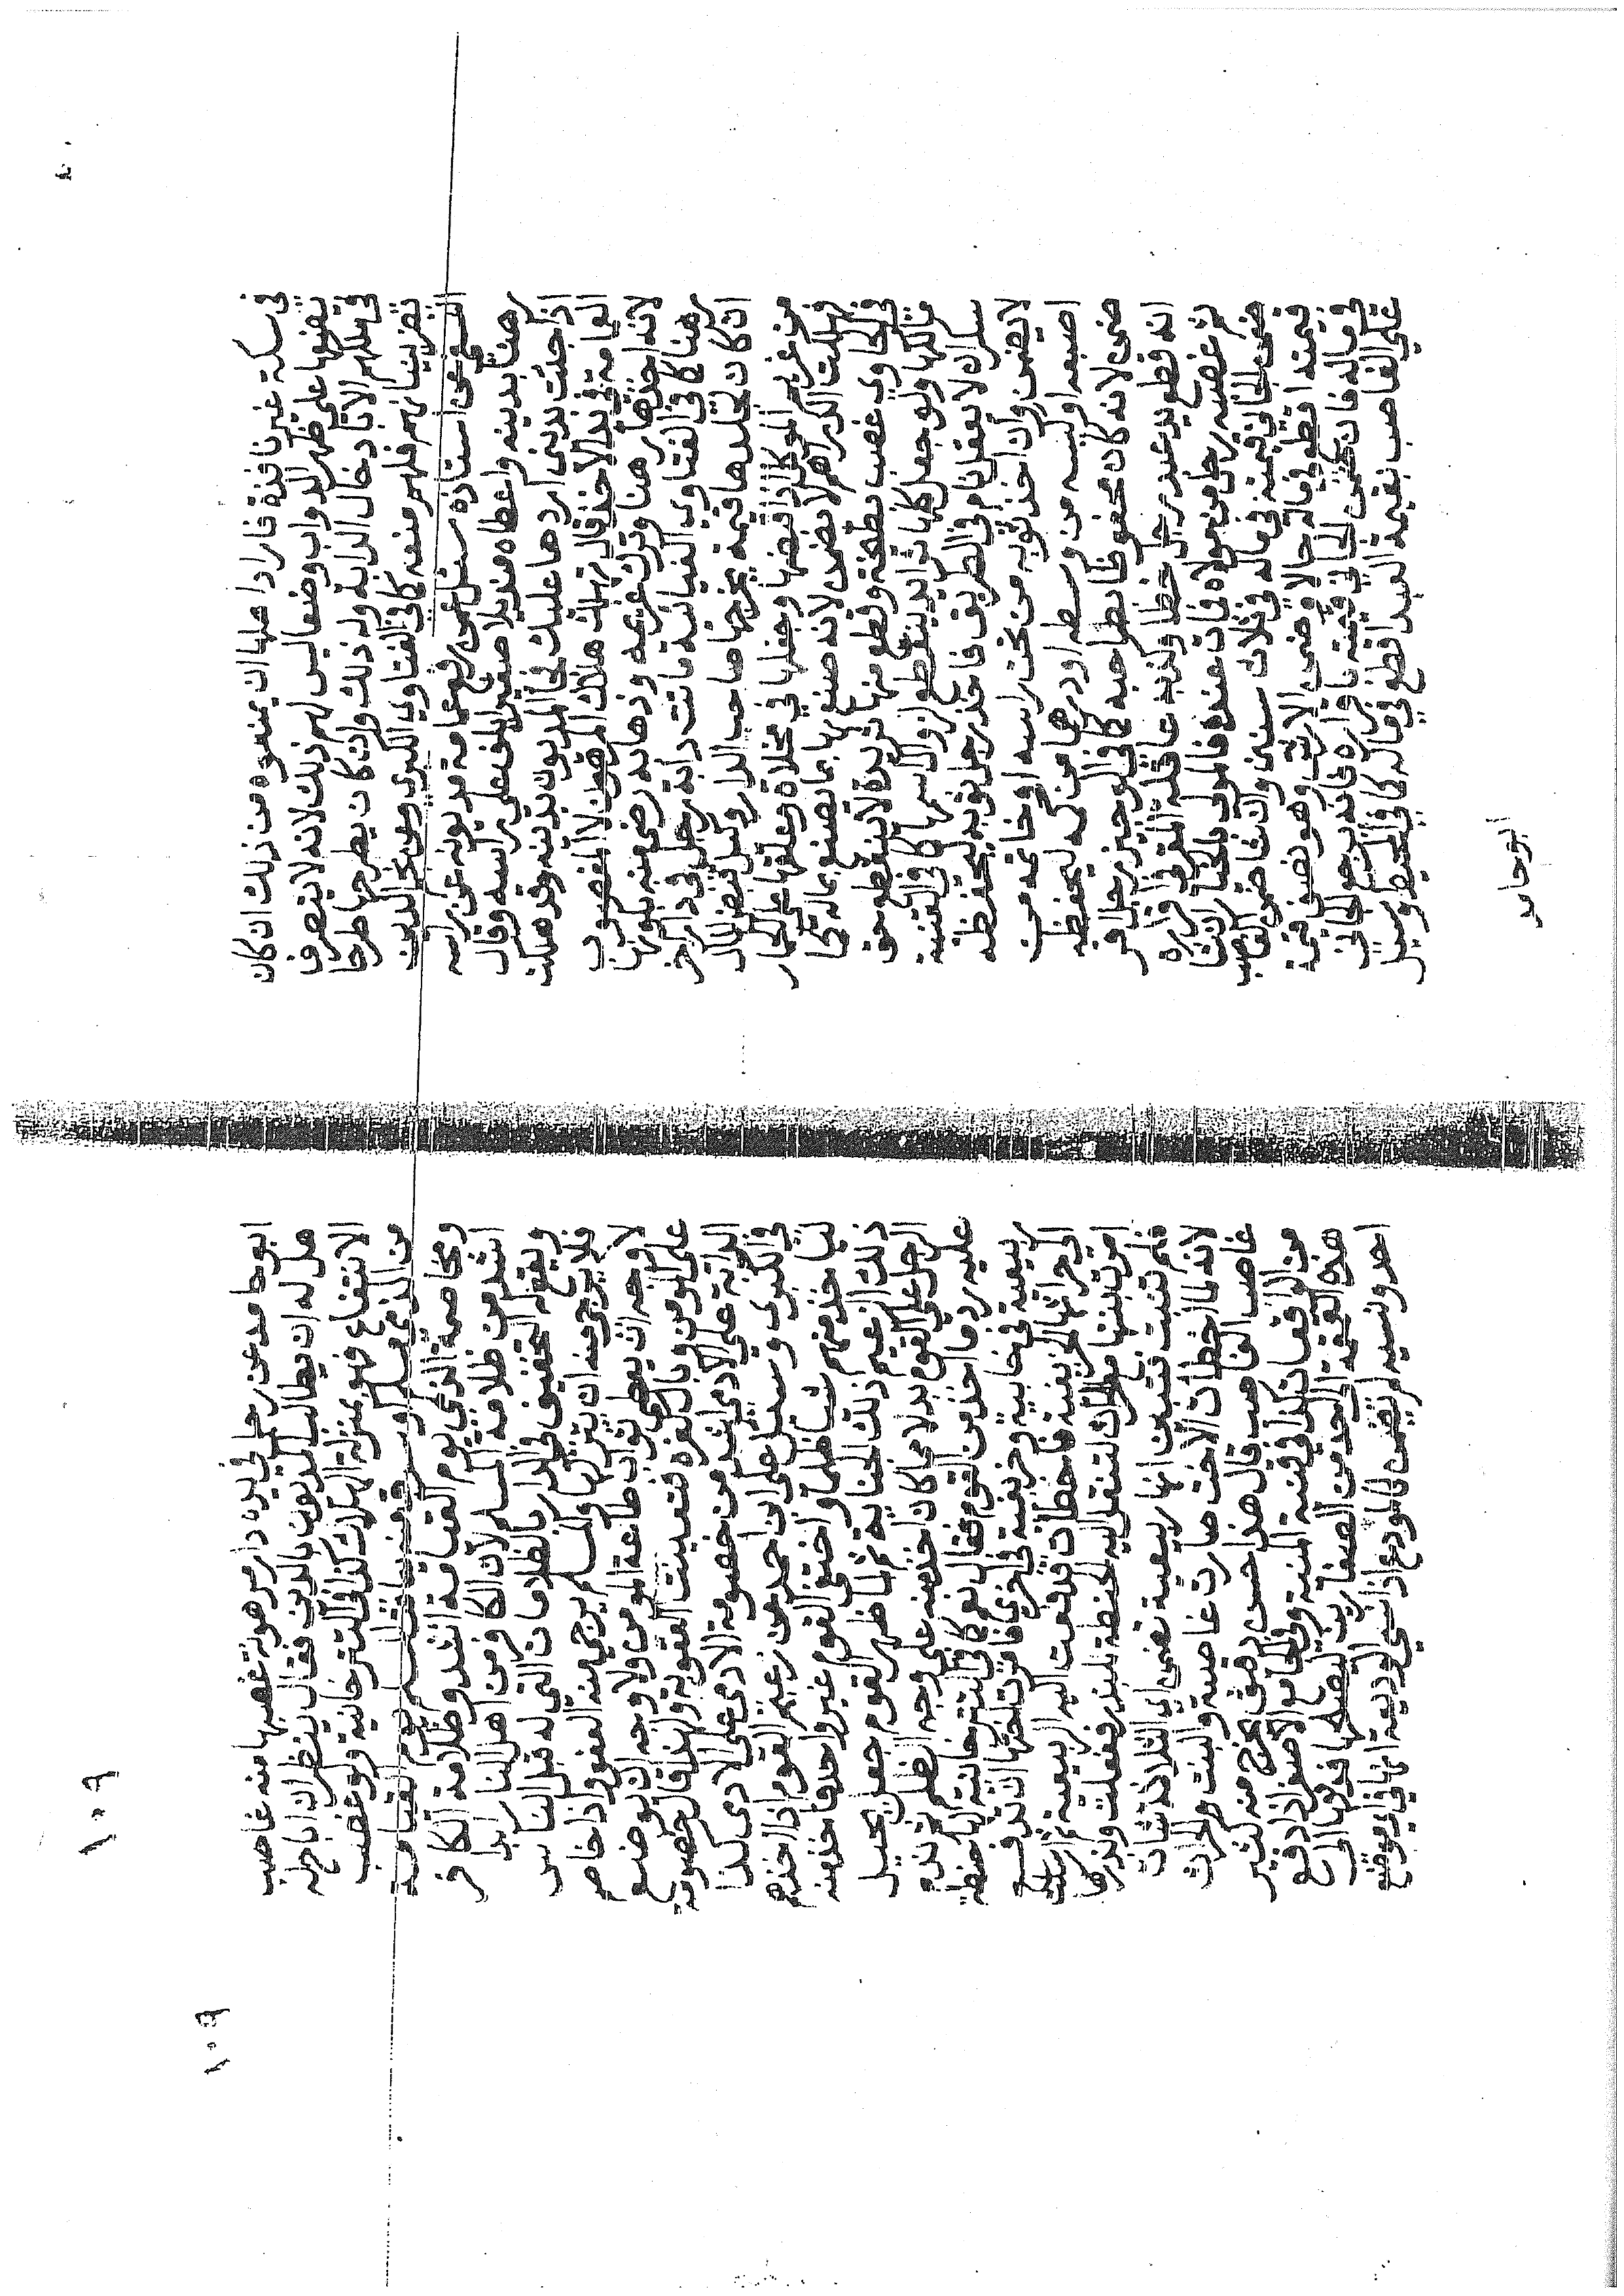 في سكة غير نافذة فاراد اهلها ان يمنعوه من ذلك ان كان
يقفوها على ظهر الدواب وضعا ليس لهم ذلك لانه لا يتصرف
في ملكهم الا بادخال الدابة وله ذلك وان كان يطرحها طرحا
تضر بنيانهم فلهم منعه كما في الفتاوي الكبرى وعن نجم الدين
النسفي عن استاذه سئل عمن رفع عمامة مديونه عن راسه
رهنا بدينه واعطاه منديلا صغيرا يلف على راسه وقال
اذا جئت بديني اردها عليك فجا المديون بدينه وقد هلكت
العمامة في يد الاخذ قال تهلك هلاك المرهون لا المغصوب
لانه اخذها رهنا وترك غريمه وذهابه رضي منه بكونها
رهنا كما في الفتاوي الغياثية ماتت دابة رجل في دار اخر
ان كان لجلدها قيمة يخرجها صاحب الدار وكيل قبض المال
من غريم الموكل اذا قبضها وجعلها في مخلاة وعلقها على الحمار
فهلكت الدراهم لا يضمن لانه صنع بها ما يصنع بماله كما
في الحاوي غصب بطيخة وقطع منها ثريدة لا ينقطع حق
مالكها ولو جعل كلها ثرايد ينقطع لزوال اسمها كما في القنية
سكران لا يعقل نام في الطريق فاخذ رجل ثوبه ليحفظه
لا يضمن وان اخذ ثوبه من تحت راسه او خاتمه من
اصبعه او كيسه من وسطه او درهما من كمه ليحفظه
ضمن لانه كان محفوظا بصاحبه كما في الوجيز رجل اقر
انه قطع يد عبد رجل خطا وكذبه عاقلة المقر في اقراره
ثم غصبه رجل من مولاه فمات عنده فالمولى بالخيار ان شا
ضمن الجاني قيمته في ماله في ثلاث سنين وان شا ضمن الغاصب
قيمته اقطع في ماله حالا وضمن الارش وهو نصف قيمته
في ماله فان ضمن الجاني قيمته باقراره فانه يرجع الجاني
على الغاصب بقيمة العبد اقطع في ماله كما في المحيط وسئل
ابو حامد
١٠٩
١٠٩
ابو حامد عن رجل في يده دار مرهونة غصبها منه غاصب
هل له ان يطالب المديون بالدين فقال ينظر ان اباح له
الانتفاع فهو بمنزلة الهلاك كذا في التترخانية ولو غصب
من الذمي مسلم او سرق منه يعاقب المسلم يوم القيامة
ومخاصمة الذمي يوم القيامة اشد وظلامة الكافر
اشد من ظلامة المسلم لان الكافر من اهل النار ابدا
ويقع له التخفيف في النار بالظلامات التي له قبل الناس
فلا يرجى منه ان يتركها والمسلم يرجى منه العفو واذا خاصم
لا وجه ان يعطى ثواب طاعة المومن ولا وجه ان يوضع
على المومن وبال كفره فتعينت العقوبة ولهذا قال خصومة
الدابة على الادمي اشد من خصومة الادمي على الادمي كذا
في الكبرى وسئل علي ابن احمد عن زعيم القوم اذا اخذهم
ليا خذ منهم شيا ظلما واختفى القوم غير واحد فاخذ منه
ذلك الزعيم ذلك الجناية ثم لما ظهر القوم جعل يحيل
الرجل على القوم بدلا مما كان اخذ منه على وجه الظلم تلزمه
عليه رد ما اخذ من القوم فقال نعم كما في التترخانية لها حنطة
ربيعية في خابية وخريفية في اخرى فامرت اختها ان تدفع
الى حراثها الخريفية فاخطات فدفعت اليه الربيعية ثم ارسلت
امرت بنتها مع الحراث لتنقل اليه الحنطة للبذر ففعلت وبذرها
فلم تنبت فتبين انها ربيعية تضمن اي الثلاثة شات
لانه لما اخطات الاخت صارت غاصبة والبنت والحراث
غاصب الغاصب قال هذا حسن دقيق يخرج منه كثير
من الواقعات كذا في قنية المنية وفي الجامع الاصغر اذا دفع
هذه القمقمة الى احد من الصفارين ليصلحها فدفعها الى
احد ونسيه لم يضمن كالمودع اذا نسي الوديعة انها في اي موضع